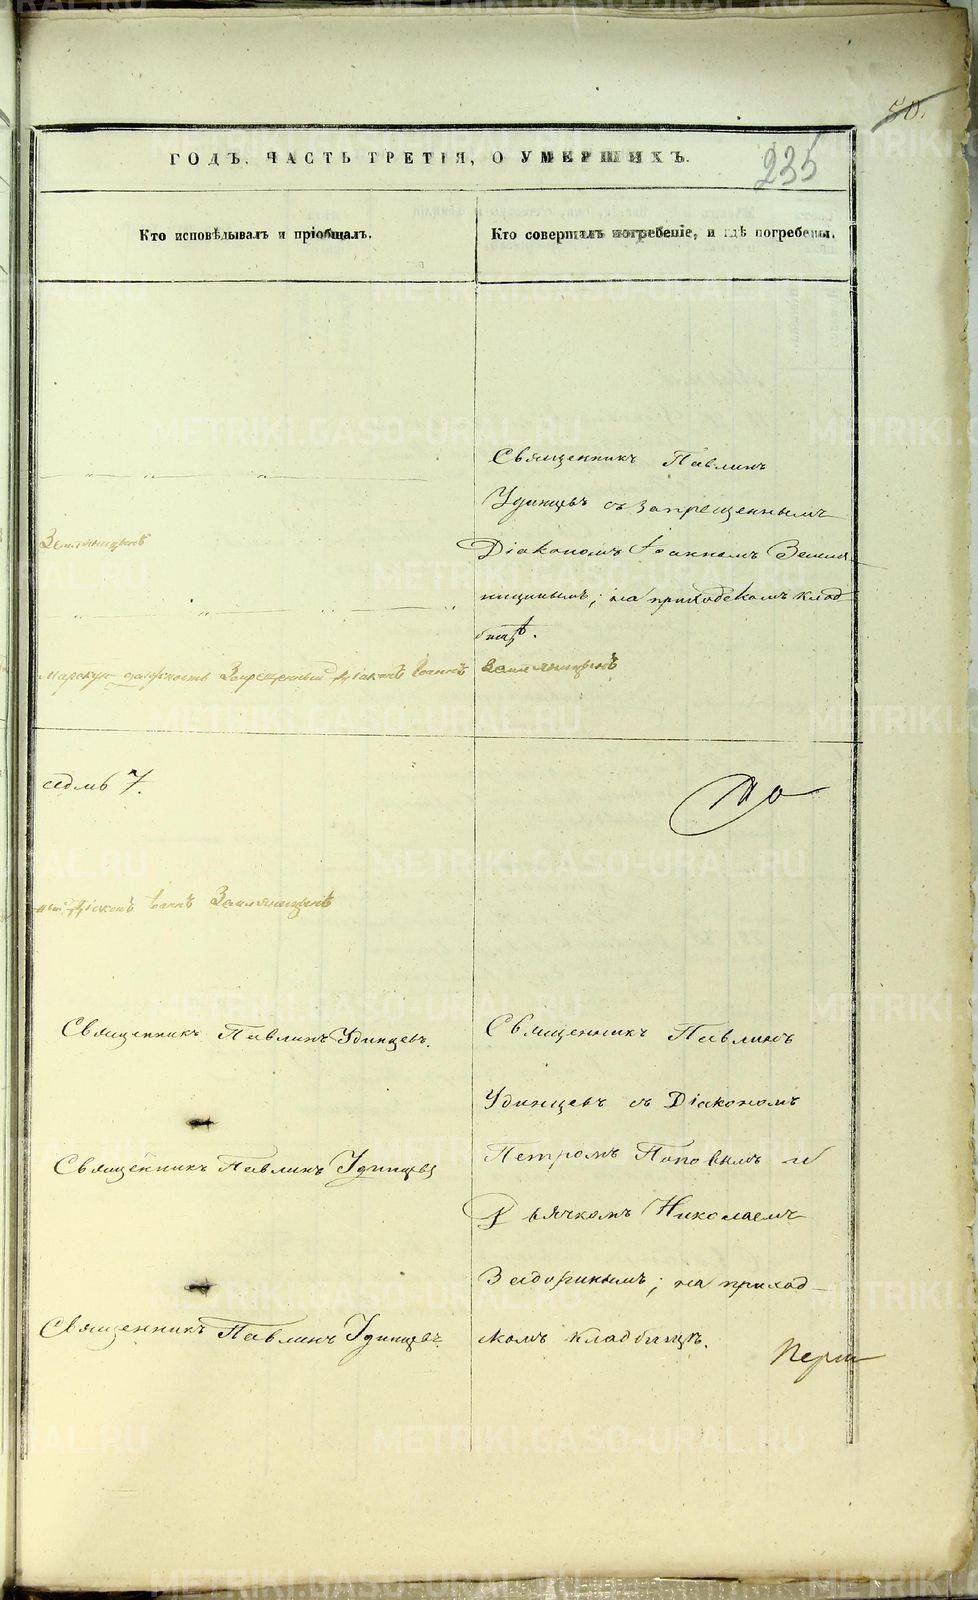 50.
235
ГОДЪ, ЧАСТЬ ТРЕТІЯ, О УМЕРШИХЪ.
Кто исповѣдывалъ и пріобщалъ.
Кто совершалъ погребеніе, и гдѣ погребены.
Священникъ Павлинъ
Удинцевъ съ запрещеннымъ
Діакономъ Іоанномъ Земля-
ницинымъ; на приходскомъ клад-
бищѣ.
Земляницинъ
должность Запрещенный Діаконъ Іоаннъ Земляницинъ
седмь 7.
Діаконъ Іоаннъ Земляницинъ
Священникъ Павлинъ Удинцевъ.
Священникъ Павлинъ Удинцевъ
Священникъ Павлинъ Удинцевъ.
Священникъ Павлинъ
Удинцевъ съ Діакономъ
Петромъ Поповымъ и
Дьячкомъ Николаемъ
Задоринымъ; на приход-
скомъ кладбищѣ.
METRIKI.GASO-URAL.RU